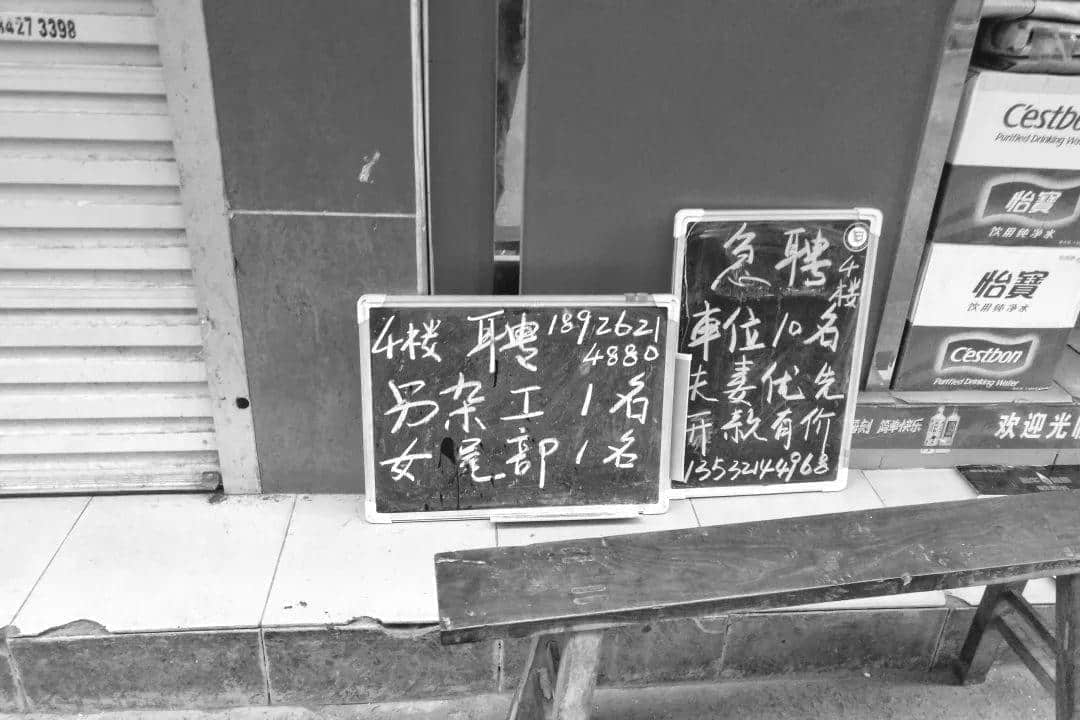 427 3398
4楼 聘 1892621
4880
男杂工 1名
女尾部 1名
急聘
4楼
車位10名
夫妻优先
开款有价
13532144968
C'estbon
Purified Drinking Wa
怡寶
饮用纯净水
怡寶
饮用纯净水
C'estbon
Purified Drinking Water
简单快乐
欢迎光